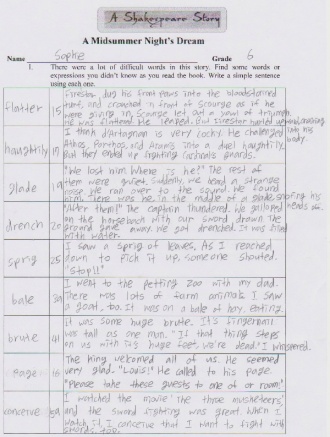 A Shakespeare Story
A Midsummer Night's Dream
Name Sophie Grade 6
1. There were a lot of difficult words in this story. Find some words or
expressions you didn't know as you read the book. Write a simple sentence
using each one.
flatter 15 Firestar dug his front paws into the bloodstained
turf, and crouched in front of Scourge as if he
were giving in. Scourge let out a yowl of triumph.
He was flattered. He leaped, but Firestar
haughtily 17 I think d'Artagnan is very cocky. He challenged into his
Athos, Porthos, and Aramis into a duel haughtily, body.
But they ended up fighting Cardinal's guards.
glade 19 "We lost him. Where is he?" The rest of
them were quiet. Suddenly we heard a strange
noise. We ran over to the sound. We found
him. There was he in the middle of a glade,
drench 20 "After them!" The captain thundered. We galloped
on the horseback with our sword drawn. The
ground gave away. We got drenched. It was filled
with water.
sprig 25 I saw a sprig of leaves. As I reached
down to pick it up, someone shouted.
"Stop!!"
bale 39 I went to the petting zoo with my dad.
There was lots of farm animals. I saw
a goat, too. It was on a bale of hay. Eating.
brute 41 It was some huge brute. It's fingernail
was tall as one man. "If that thing steps
on us with its huge feet, we're dead." I whispered.
page The king welcomed all of us. He seemed
very glad. "Louis!" He called to his page.
"Please take these guests to one of or room."
conceive I watched the movie 'the three musketeers'
and the sword fighting was great. When I
watch it, I conceive that I want to fight with
swords, too.